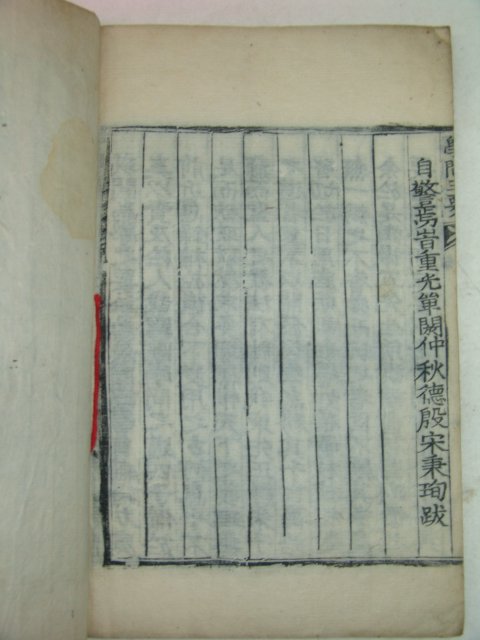 自警焉旹重光單閼仲秋德殷宋秉珣跋